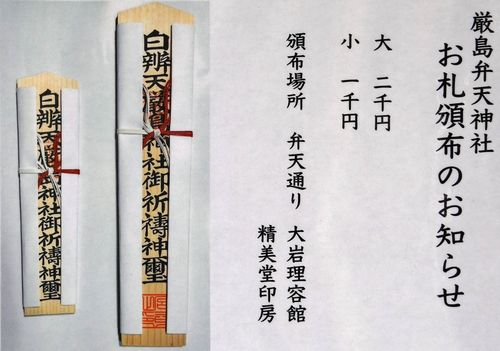 厳島弁天神社
お札頒布のお知らせ
大 二千円
小 一千円
頒布場所 弁天通り 大岩理容館
精美堂印房
白辨天嚴島神社御祈禱神璽
白辨天嚴島神社御祈禱神璽